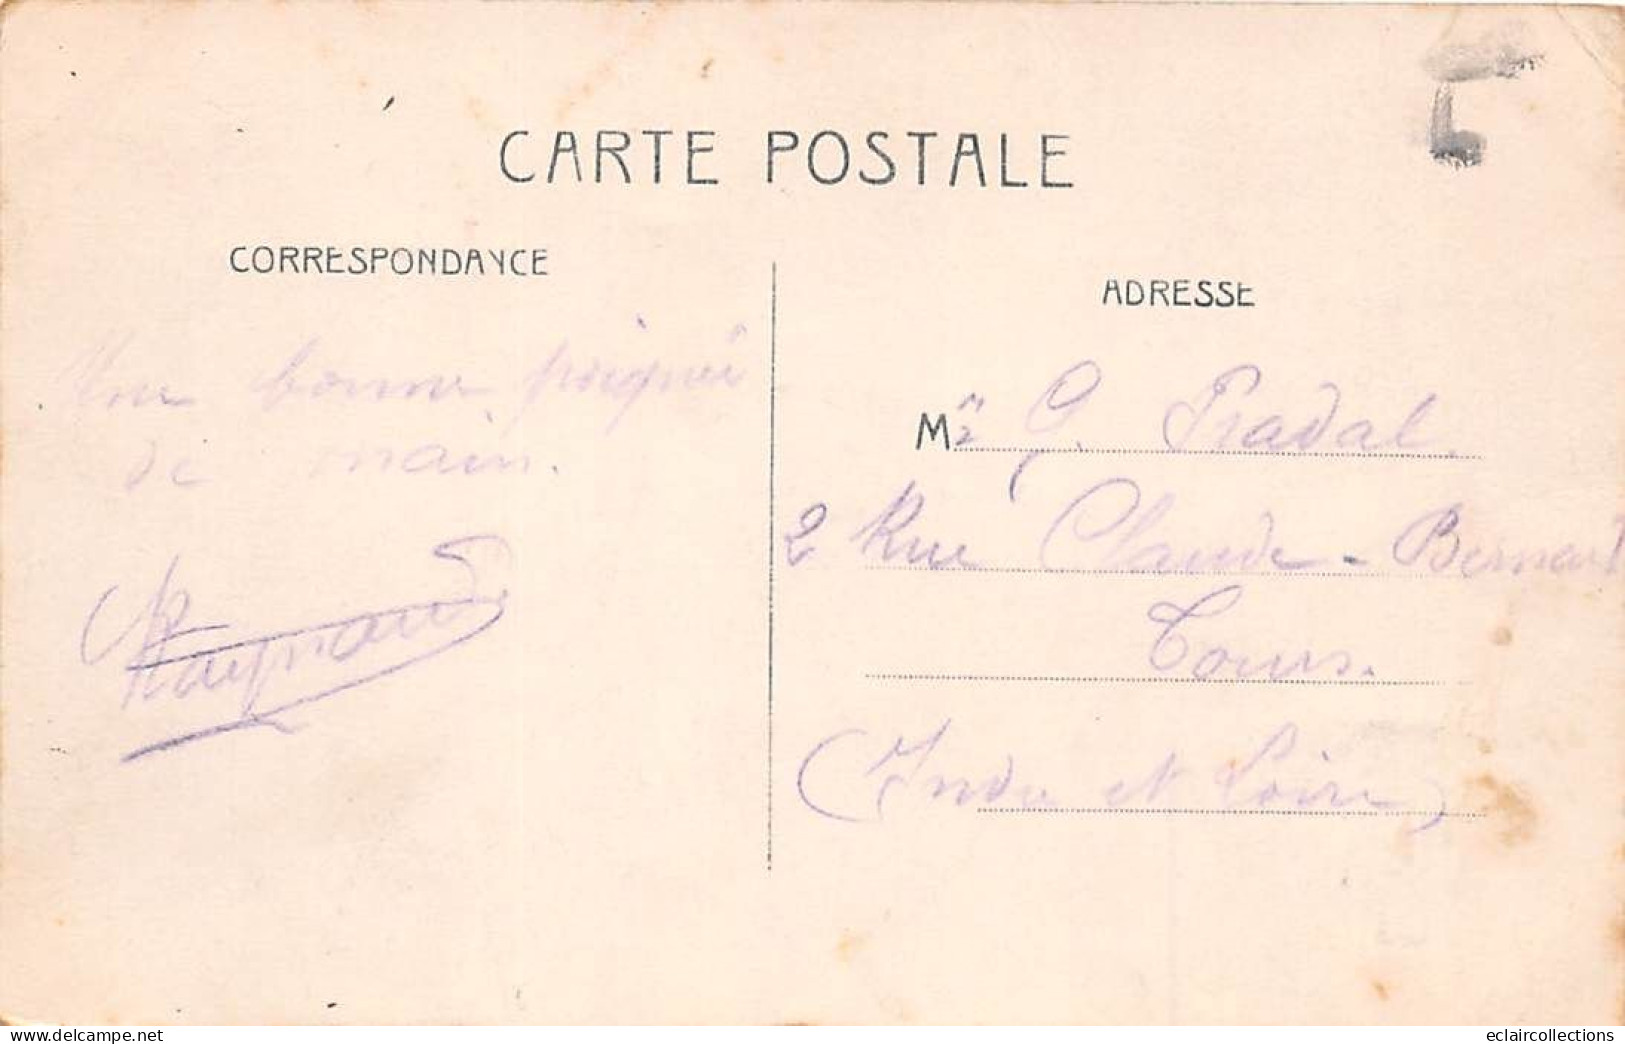 CARTE POSTALE
CORRESPONDANCE
ADRESSE
Une bonne poignée
de main.
Raynaud
M G. Pradal
2 Rue Claude-Bernard
Tours.
(Indre et Loire)
delcampe.net
eclaircollections